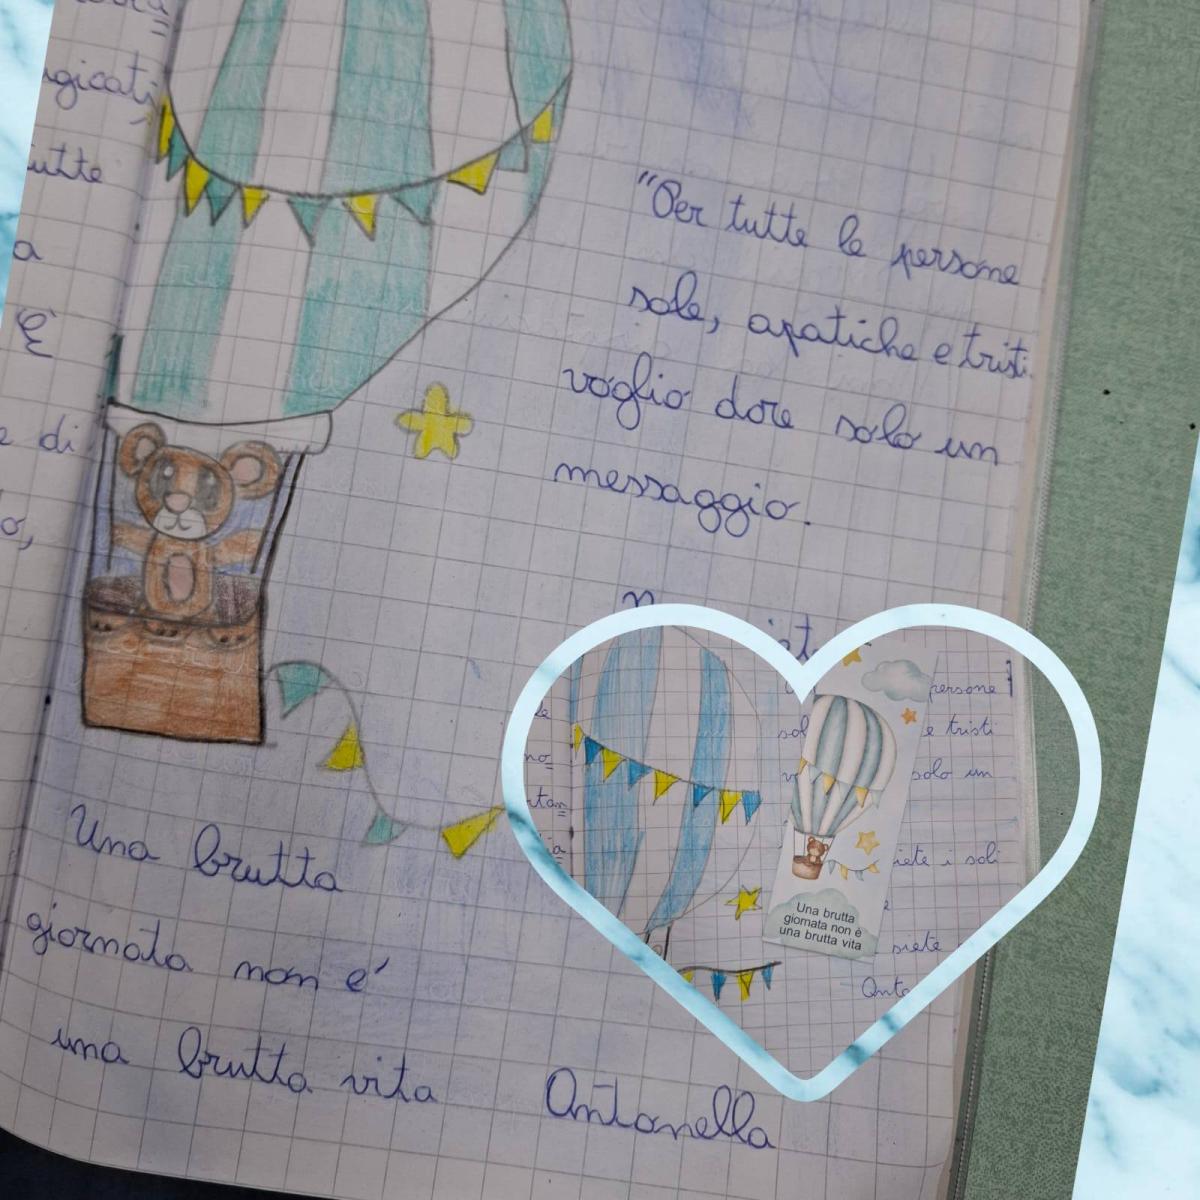 utte
a
È
di
o,
"Per tutte le persone
sole, apatiche e tristi
voglio dare solo un
messaggio.
Una brutta
giornata non é
una brutta vita
Antonella
persone
e tristi
solo un
siete i soli
siete
Una brutta
giornata non è
una brutta vita